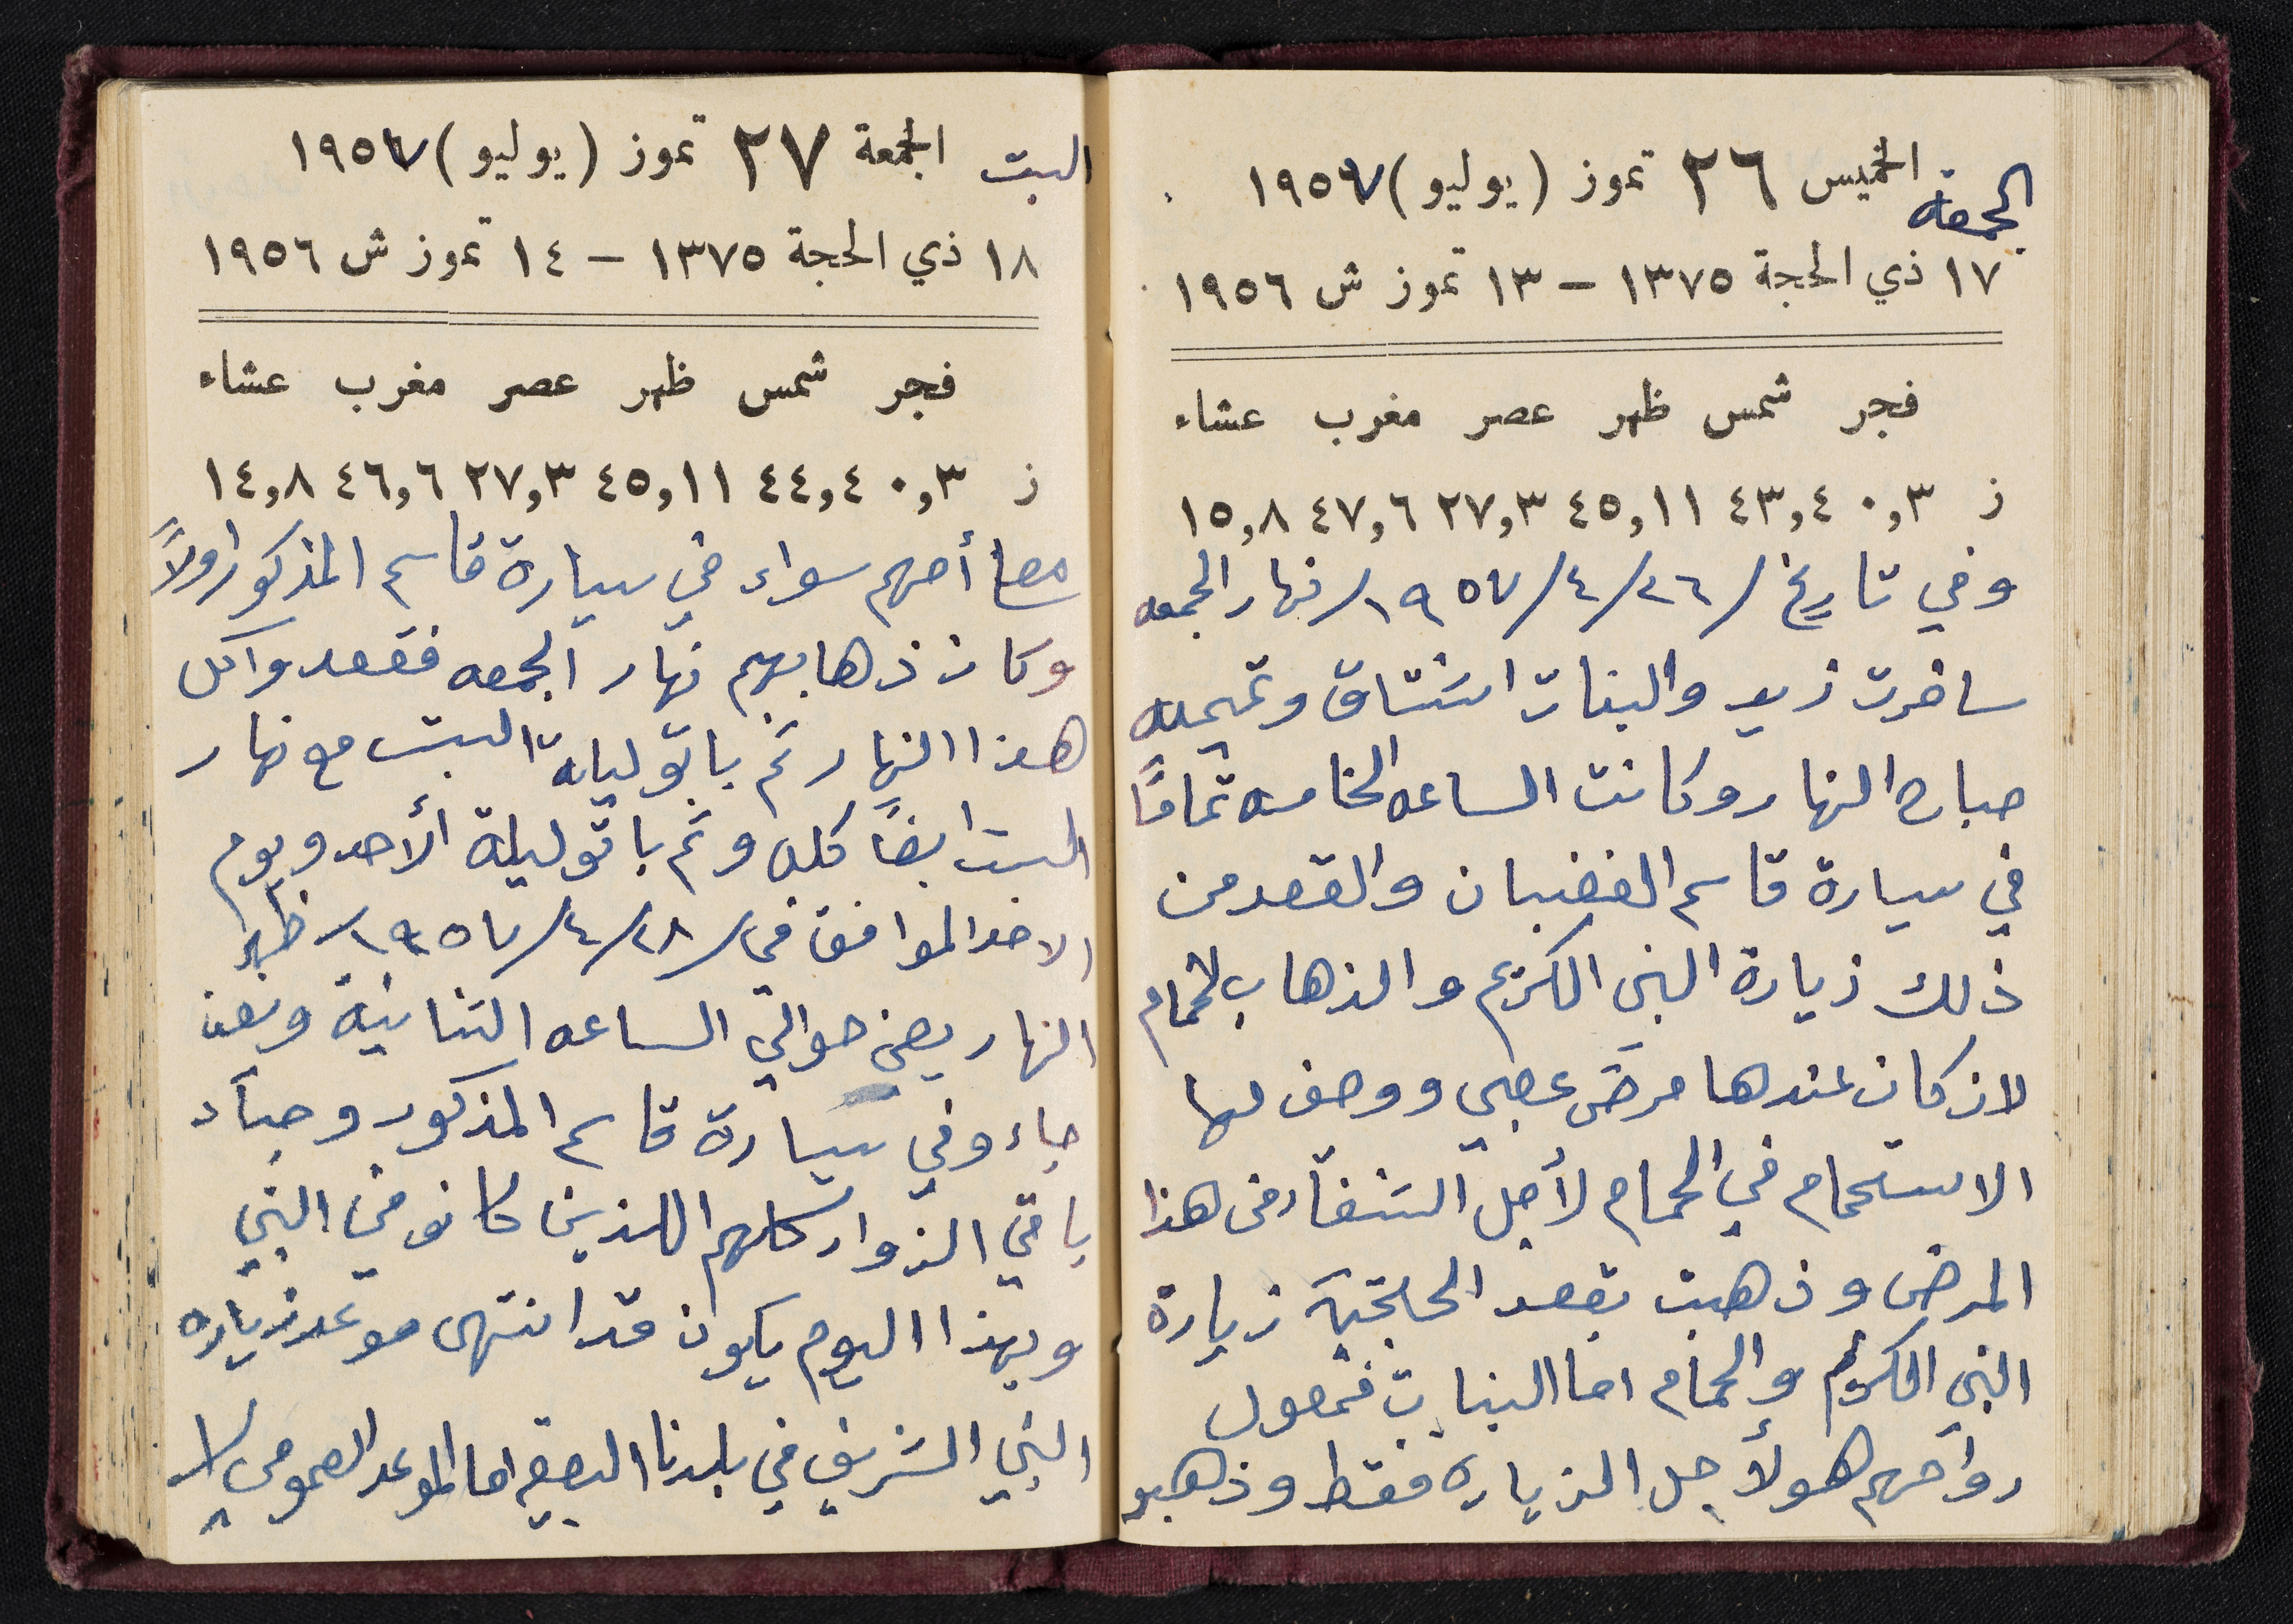 الجمعه الخميس ٢٦ تموز (يوليو) ١٩٥٧
١٧ ذي الحجة ١٣٧٥ – ١٣ تموز ش ١٩٥٦
فجر شمس ظهر عصر مغرب عشاء
ز ٠,٣ ٤٣,٤ ٤٥,١١ ٢٧,٣ ٤٧,٦ ١٥,٨
وفي تاريخ /٢٦/٤/١٩٥٧/ نهار الجمعه
سافرت زيد والبنات اشتاق وتميمه
صباح النهار وكانت الساعه الخامسه تماماً
في سيارة قاسم الغضبان والقصد من
ذلك زيارة النبي الكريم والذهاب لحمام
لان كان عندها مرض عصبي ووصف لها
الاستحمام في الحمام لأجل الشفاء من هذا
المرض وذهبت بقصد الحاجتين زيارة
النبي الكريم والحمام اما البنات فمعول
رواحهم هو لأجل الزياره فقط وذهبو
السبت الجمعة ٢٧ تموز (يوليو) ١٩٥٧
١٨ ذي الحجة ١٣٧٥ – ١٤ تموز ش ١٩٥٦
فجر شمس ظهر عصر مغرب عشاء
ز ٠,٣ ٤٤,٤ ٤٥,١١ ٢٧,٣ ٤٦,٦ ١٤,٨
مع أمهم سواء في سيارة قاسم المذكور اولاً
وكان ذهابهم نهار الجمعه فقعدو اكل
هذا النهار ثم باتو ليلة السبت مع نهار
السبت ايضاً كله وثم باتو ليلة الأحد ويوم
الاحد الموافق في /٢٨/٤/١٩٥٧/ ظهر
النهار يعني حوالي الساعه الثانية ونصف
جاءو في سيارة قاسم المذكور وجاء
باقي الزوار كلهم اللذين كانو في النبي
وبهذا اليوم يكون قد انتهى موعد زيارة
النبي الشريف في بلدنا البصيه اما الموعد العمومي لا